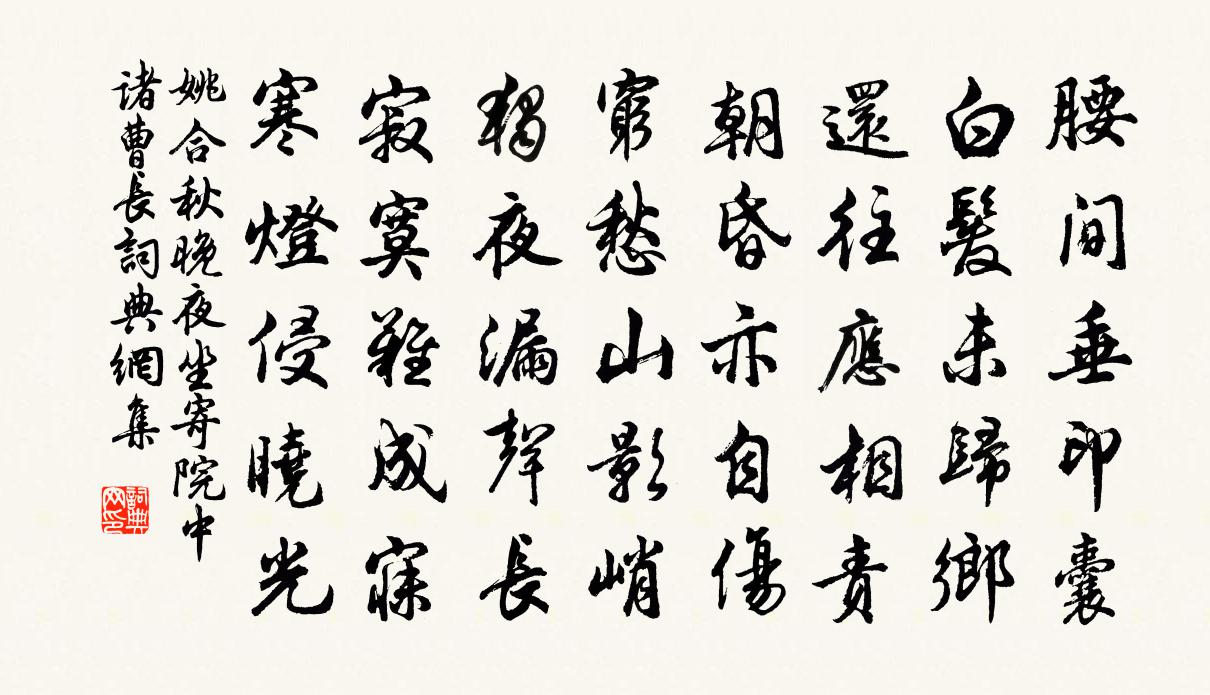 腰間垂印囊
白髮未歸鄉
還往應相責
朝昏亦自傷
窮愁山影峭
獨夜漏聲長
寂寞難成寐
寒燈侵曉光
姚合秋晚夜坐寄院中
諸曹長詞典網集
詞典網印